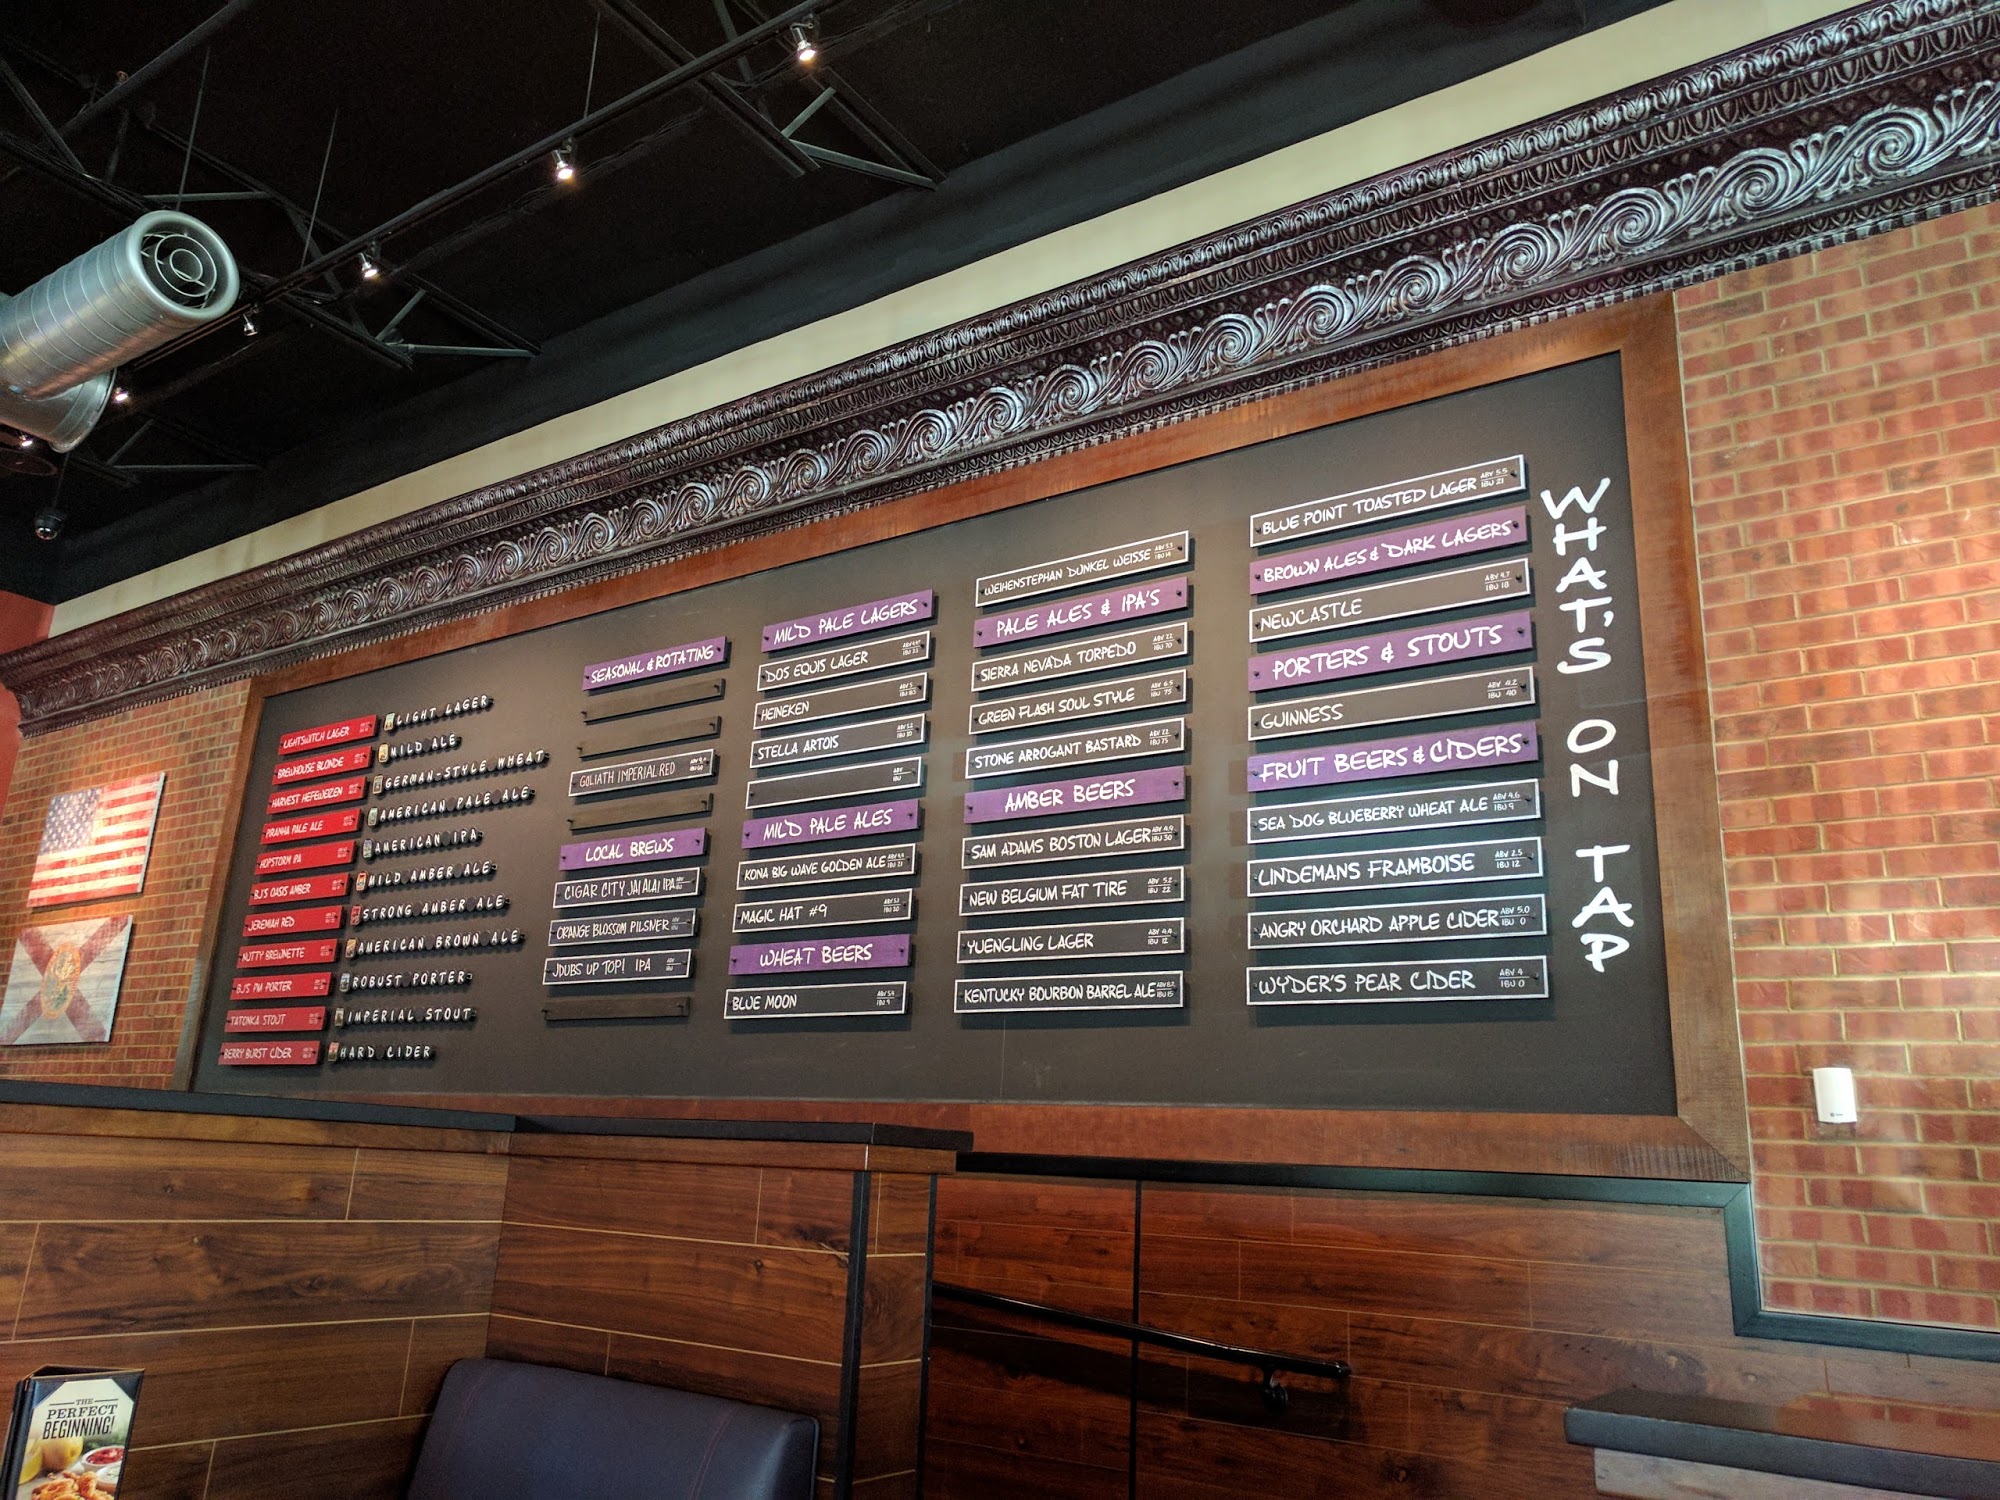 LIGHTSWITCH LAGER LIGHT LAGER
BREWHOUSE BLONDE MILD ALE
HARVEST HEFEWEIZEN GERMAN-STYLE WHEAT
PIRANHA PALE ALE AMERICAN PALE ALE
HOPSTORM IPA AMERICAN IPA
BJ'S OASIS AMBER MILD AMBER ALE
JEREMIAH RED STRONG AMBER ALE
NUTTY BREWNETTE AMERICAN BROWN ALE
BJ'S PM PORTER ROBUST PORTER
TATONKA STOUT IMPERIAL STOUT
BERRY BURST CIDER HARD CIDER
SEASONAL & ROTATING
GOLIATH IMPERIAL RED
LOCAL BREWS
CIGAR CITY JAI ALAI IPA
ORANGE BLOSSOM PILSNER
JDUBS UP TOP! IPA
MILD PALE LAGERS
DOS EQUIS LAGER
HEINEKEN
STELLA ARTOIS
ABV
IBU
MILD PALE ALES
KONA BIG WAVE GOLDEN ALE
MAGIC HAT #9
WHEAT BEERS
BLUE MOON ABV 5.4
IBU 9
WEIHENSTEPHAN DUNKEL WEISSE ABV 5.3
IBU 14
PALE ALES & IPA'S
SIERRA NEVADA TORPEDO ABV 7.2
IBU 70
GREEN FLASH SOUL STYLE ABV 6.5
IBU 75
STONE ARROGANT BASTARD ABV 7.2
IBU 75
AMBER BEERS
SAM ADAMS BOSTON LAGER ABV 4.9
IBU 30
NEW BELGIUM FAT TIRE ABV 5.2
IBU 22
YUENGLING LAGER ABV 4.4
IBU 12
KENTUCKY BOURBON BARREL ALE ABV 8.2
IBU 15
BLUE POINT TOASTED LAGER ABV 5.5
IBU 21
BROWN ALES & DARK LAGERS
NEWCASTLE ABV 4.7
IBU 18
PORTERS & STOUTS
GUINNESS ABV 4.2
IBU 40
FRUIT BEERS & CIDERS
SEA DOG BLUEBERRY WHEAT ALE ABV 4.6
IBU 9
LINDEMANS FRAMBOISE ABV 2.5
IBU 12
ANGRY ORCHARD APPLE CIDER ABV 5.0
IBU 0
WYDER'S PEAR CIDER ABV 4
IBU 0
WHAT'S ON TAP
THE
PERFECT
BEGINNING!